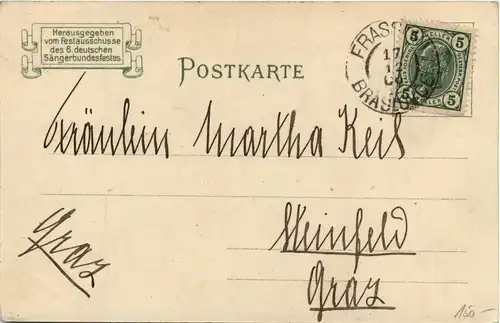 Herausgegeben
vom Festausschusse
des 6. deutschen
Sängerbundesfestes.
POSTKARTE
5 5
5 5
Fräulein Martha Keil
Steinfeld
Graz
Graz
150